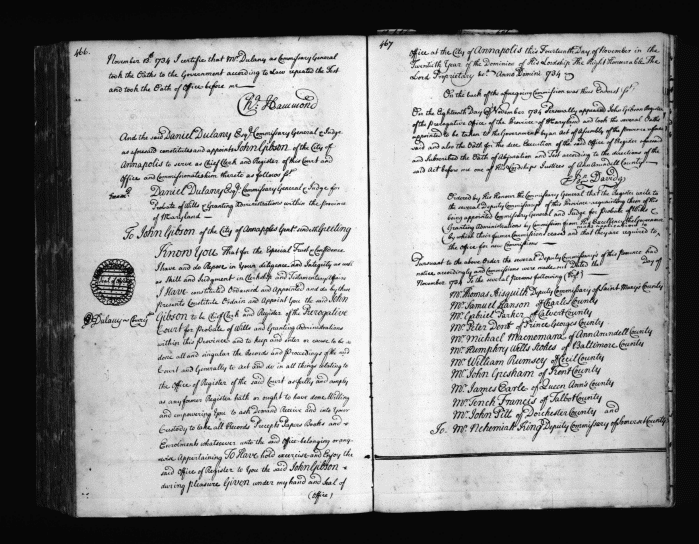 466.
November 13th. 1734 I certifie that Mr. Dulany as Commissary General
took the Oaths to the Government according to Law repeated the Test
and took the Oath of Office before me
Chs. Hammond
And the said Daniel Dulany Esqr. Commissary General & Judge
as aforesaid constitutes and appoints John Gibson of the City of
Annapolis to serve as Chief Clerk and Register of this Court and
Office and Commissionates him thereto as follows
Daniel Dulany Esqr. Commissary General & Judge for
Probate of Wills & Granting Administrations within the province
of Maryland
To John Gibson of the City of Annapolis Gent. Greeting
Know You That for the Especial Trust & Confidence
I have and do Repose in Your diligence and Integrity as well
as Skill and Judgment in Clerkship and Testamentary Affairs
I Have constituted Ordained and Appointed and do by these
presents Constitute Ordain and Appoint You the said John
D Dulany
Gibson to be Chief Clerk and Register of the Prerogative
Court for Probate of Wills and Granting Administrations
within this Province and to keep and enter or cause to be
done all and singular the Records and Proceedings of the said
Court and Generally to Act and do in all things relating to
the Office of Register of the said Court as fully and amply
as any former Register hath or ought to have done, Willing
and empowering You to ask Demand Receive and into Your
Custody to take all Records Precepts Papers Books and
Enrolments whatsoever unto the said Office belonging or any
wise Appertaining To Have hold exercise and Enjoy the
said Office of Register to You the said John Gibson
during pleasure Given under my hand and Seal of
(Office)
467
Office at the City of Annapolis this Fourteenth Day of November in the
Twentieth Year of the Dominion of His Lordship The Right Honourable The
Lord Proprietary &c. Anno Domini 1734
On the back of the aforegoing Commission was thus Endorsed
On the Eighteenth Day of November 1734 Personally appeared John Gibson Register
of the Prerogative Office of the Province of Maryland and took the several Oaths
appointed to be taken to the Government by an Act of Assembly of the Province
and also the Oath for the due Execution of the said Office of Register aforesaid
and Subscribed the Oath of Abjuration and Test according to the directions of the
said Act before me one of his Lordships Justices of Annarundell County
Ordered by his Honour the Commissary General that the Register write to
the several Deputy Commissarys of this Province requainting them of his
being appointed Commissary General and Judge for Probate of Wills &
Granting Administrations by Commission from his Excellency the Governour
by which their former Commissions ceased and that they are required to
make applications
the Office for new Commissions
Pursuant to the above Order the several Deputy Commissarys of this Province had
notice accordingly and Commissions were made out Dated the Day of
November 1734 To the several Persons following
Mr. Thomas Aisquith Deputy Commissary of Saint Marys County
Mr. Samuel Hanson of Charles County
Mr. Gabriel Parker of Calvert County
Mr. Peter Dent of Prince Georges County
Mr. Michael Macnemara of Ann Arundell County
Mr. Humphry Wells Stokes of Baltimore County
Mr. William Rumsey of Cecil County
Mr. John Gresham of Kent County
Mr. James Earle of Queen Anns County
Mr. Tench Francis of Talbot County
Mr. John Pitt of Dorchester County and
To Mr. Nehemiah King Deputy Commissary of Somerset County